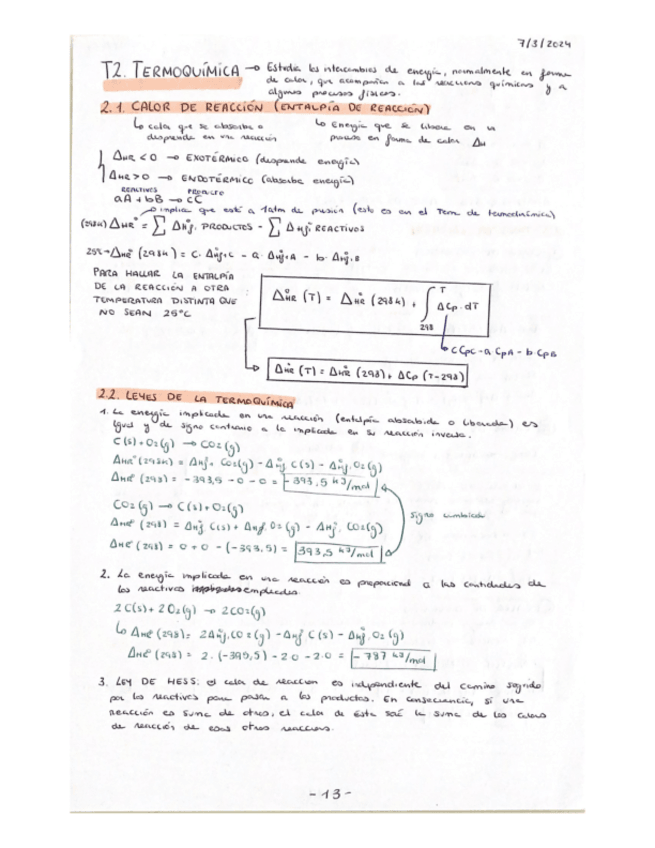 7/3/2024
T2. TERMOQUÍMICA → Estudia los intercambios de energía, normalmente en forma
de calor, que acompañan a las reacciones químicas y a
algunos procesos físicos.
2.1. CALOR DE REACCIÓN (ENTALPÍA DE REACCIÓN)
↳ calor que se absorbe o
desprende en una reacción
↳ Energía que se libera en un
proceso en forma de calor ΔH
ΔHR < 0 → EXOTÉRMICO (desprende energía)
ΔHR > 0 → ENDOTÉRMICO (absorbe energía)
REACTIVOS PRODUCTO
aA + bB → cC
→ implica que está a 1atm de presión (esto es en el Tema de termodinámica)
(298K) ΔHR° = ∑ ΔHf°, PRODUCTOS - ∑ ΔHf°, REACTIVOS
25º → ΔHR° (298K) = c · ΔHf°,C - a · ΔHf°,A - b · ΔHf°,B
PARA HALLAR LA ENTALPÍA
DE LA REACCIÓN A OTRA
TEMPERATURA DISTINTA QUE
NO SEAN 25°C
ΔHR° (T) = ΔHR° (298K) + ∫ T 298 ΔCp · dT
↳ c CpC - a CpA - b CpB
ΔHR° (T) = ΔHR° (298) + ΔCp (T-298)
2.2. LEYES DE LA TERMOQUÍMICA
1. La energía implicada en una reacción (entalpía absorbida o liberada) es
igual y de signo contrario a la implicada en su reacción inversa.
C(s) + O2(g) → CO2(g)
ΔHR° (298K) = ΔHf°, CO2(g) - ΔHf°, C(s) - ΔHf°, O2(g)
ΔHR° (298) = -393,5 - 0 - 0 = -393,5 kJ/mol
CO2(g) → C(s) + O2(g)
signo cambiado
ΔHR° (298) = ΔHf°, C(s) + ΔHf°, O2(g) - ΔHf°, CO2(g)
ΔHR° (298) = 0 + 0 - (-393,5) = 393,5 kJ/mol
2. La energía implicada en una reacción es proporcional a las cantidades de
los reactivos empleados.
2C(s) + 2O2(g) → 2CO2(g)
↳ ΔHR° (298) = 2ΔHf°, CO2(g) - ΔHf°, C(s) - ΔHf°, O2(g)
ΔHR° (298) = 2 · (-393,5) - 2·0 - 2·0 = -787 kJ/mol
3. LEY DE HESS: el calor de reacción es independiente del camino seguido
por los reactivos para pasar a los productos. En consecuencia, si una
reacción es suma de otras, el calor de ésta será la suma de los calores
de reacción de esas otras reacciones.
-13-